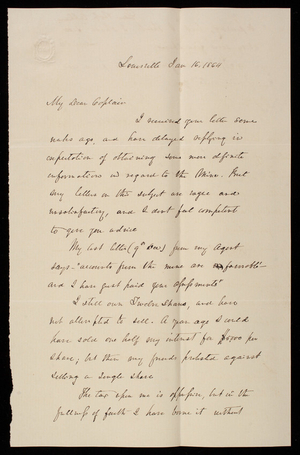 Louisville Jan 16, 1884
My Dear Captain
I received your letter some
weeks ago, and have delayed replying in
expectation of obtaining some more definite
information in regard to the Mine. But
my letters on the subject are vague and
unsatisfactory, and I don't feel competent
to give you advice.
My last letter (9" Dec) from my Agent
says - "accounts from the mine are favorable -
and I have just paid your assessments"
I still own Twelve Shares, and have
not attempted to sell. A year ago I could
have sold one half my interest for $5000 per
Share; but then my friends protested against
selling a single share.
The tax upon me is oppressive, but in the
fullness of faith I have borne it without